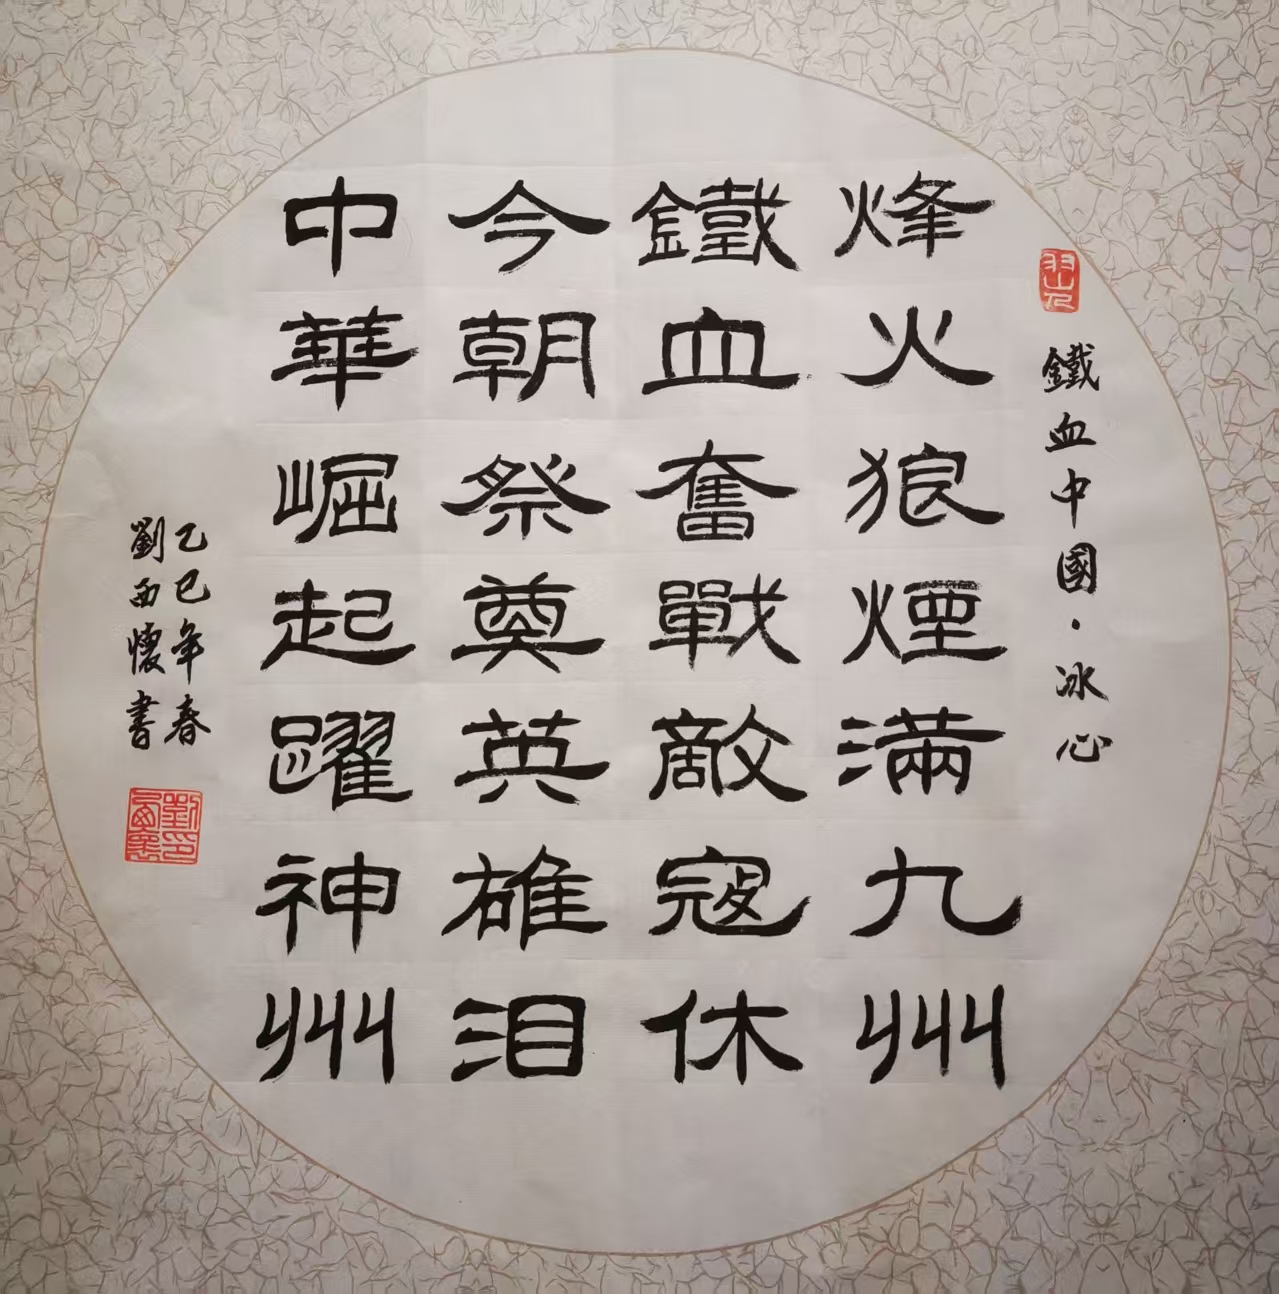 鐵血中國·冰心
烽火狼煙滿九州
鐵血奮戰敵寇休
今朝祭奠英雄淚
中華崛起躍神州
乙巳年春
劉西懷書